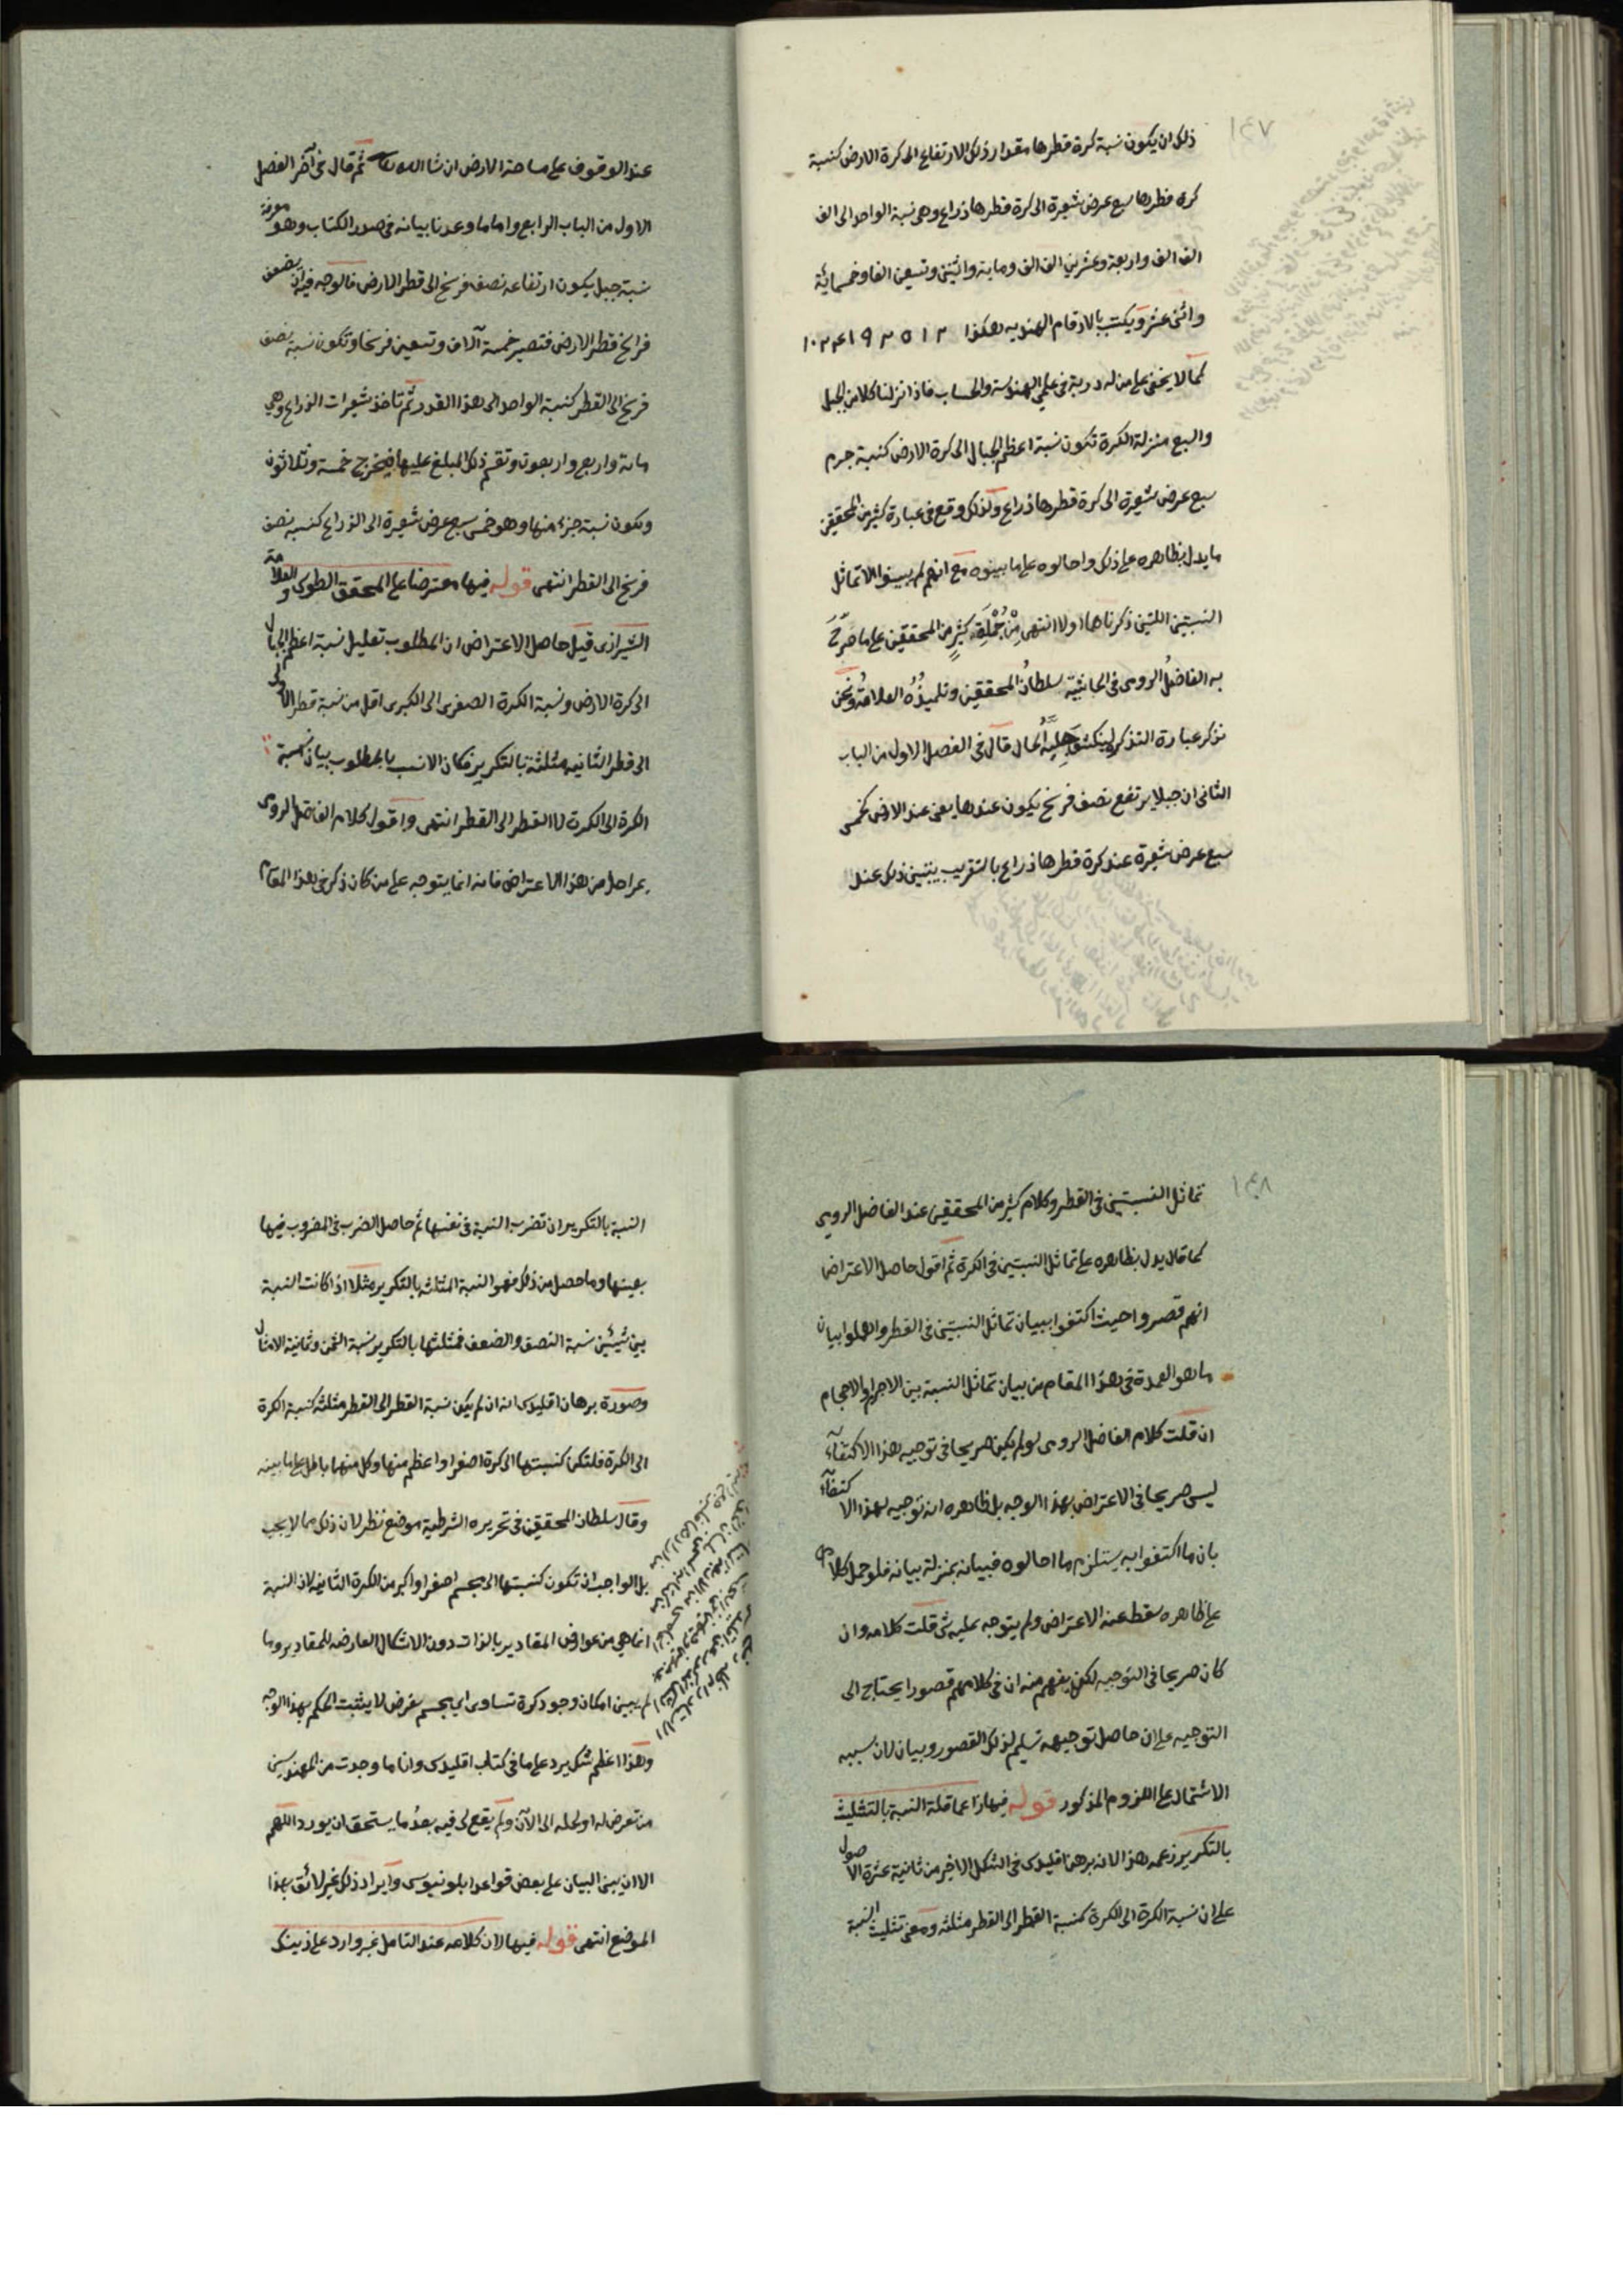 ١٤٧
ذلك ان يكون نسبة كرة قطرها مقدار ذلك الارتفاع الى كرة الارض كنسبة
كرة قطرها سبع عرض شعيرة الى كرة قطرها ذراع وهى نسبة الواحد الى الف
الف الف واربعة وعشرين الف الف وماية واثنين وتسعين الفا وخمسمائة
واثنى عشر ويكتب بالارقام الهنديه هكذا ١٠٢٤١٩٢٥١٢
كما لا يخفى على من له دربة فى علمى الهندسة والحساب فاذا نزلنا كلا من الجبل
والسبع منزلة الكرة تكون نسبة اعظم الجبال الى كرة الارض كنسبة جرم
سبع عرض شعيرة الى كرة قطرها ذراع ولذلك وقع فى عبارة كثير من المحققين
ما يدل بظاهره على ذلك واحالوه على ما بينوه مع انهم لم يبينوا الا تماثل
النسبتين اللتين ذكرناهما اولا انتهى مِنْ جُمْلَةِ كثيرٍ من المحققين على ما صَرَّحَ
به الفاضلُ الرومى فى الحاشية سلطانُ المحققين وتلميذُه العلامةُ ونحن
نذكر عبارة التذكرة لينكشف جلِيَّة الحال قال فى الفصل الاول من الباب
الثانى ان جبلا يرتفع نصف فرسخ يكون عندها يعنى عند الارض كخمس
سبع عرض شعيرة عند كرة قطرها ذراع بالتقريب يتبين ذلك عند
عند الوقوف على مساحة الارض ان شا الله تعالى ثم قال فى آخر الفصل
الاول من الباب الرابع واما ما وعدنا بيانه فى صدر الكتاب وهو معرفة
نسبة جبل يكون ارتفاعه نصف فرسخ الى قطر الارض فالوجه فيه ان يضعف
فراسخ قطر الارض فتصير خمسة آلاف وتسعين فرسخا وتكون نسبة نصف
فرسخ الى القطر كنسبة الواحد الى هذا القدر ثم تاخذ شعيرات الذراع وهى
مائة واربع واربعون وتقسم ذلك المبلغ عليها فيخرج خمسة وثلاثون
ويكون نسبة جزء منها وهو خمس سبع عرض شعيرة الى الذراع كنسبة نصف
فرسخ الى القطر انتهى قوله فيها معترضا على المحقق الطوسى والعلامة
الشيرازى قيل حاصل الاعتراض ان المطلوب تعليل نسبة اعظم الجبال
الى كرة الارض ونسبة الكرة الصغرى الى الكبرى اقل من نسبة قطر الاولى
الى قطر الثانيه مثلثة بالتكرير فكان الانسب بالمطلوب بيان نسبة
الكرة الى الكرة لا القطر الى القطر انتهى واقول كلام الفاضل الرومى
بمراحل من هذا الاعتراض فانه انما يتوجه على من كان ذكر فى هذا المقام
١٤٨
تماثل النسبتين فى القطر وكلام كثير من المحققين عند الفاضل الرومى
كما قال يدل بظاهره على تماثل النسبتين فى الكرة ثم اقول حاصل الاعتراض
انهم قصروا حيث اكتفوا ببيان تماثل النسبتين فى القطر واهملوا بيان
ما هو العمدة فى هذا المقام من بيان تماثل النسبة بين الاجرام والاحجام
ان قلت كلام الفاضل الرومى لو لم يكن صريحا فى توجيه هذا الاكتفآء
ليس صريحا فى الاعتراض بهذا الوجه بل ظاهره انه توجيه لهذا الاكتفآء
بان ما اكتفوا به يستلزم ما احالوه فبيانه بمنزلة بيانه فلو حمل كلامه
على ظاهره سقط عنه الاعتراض ولم يتوجه عليه شى قلت كلامه وان
كان صريحا فى التوجيه لكن يفهم منه ان فى كلامهم قصورا يحتاج الى
التوجيه على ان حاصل توجيهه تسليم لذلك القصور وبيان لان سببه
الاشتمال على اللزوم المذكور قوله فيها زاعما قلة النسبة بالتثليث
بالتكرير زعمه هذا لانه برهن اقليدس فى الشكل الاخير من ثانية عشرة الاصول
على ان نسبة الكرة الى الكرة كنسبة القطر الى القطر مثلثه ومعنى تثليث النسبة
النسبة بالتكرير ان تضرب النسبة فى نفسها ثم حاصل الضرب فى المضروب فيها
بعينها وما حصل من ذلك فهو النسبة المثلثه بالتكرير مثلا اذا كانت النسبة
بين شيئين نسبة النصف والضعف فمثلثها بالتكرير نسبة الثمن وثمانية الامثال
وصورة برهان اقليدس انه ان لم يكن نسبة القطر الى القطر مثلثه كنسبة الكرة
الى الكرة فلتكن كنسبتها الى كرة اصغر او اعظم منها وكل منهما باطل على ما بينه
وقال سلطان المحققين فى تحريره الشرطية موضع نظر لان ذلك مما لا يجب
بل الواجب ان تكون كنسبتها الى مجسم اصغر او اكبر من الكرة الثانيه لان النسبة
انما هى من عوارض المقادير بالذات دون الاشكال العارضه للمقادير وما
لم يبين امكان وجود كرة تساوى اى مجسم يفرض لا يثبت الحكم بهذا الوجه
وهذا اعظم شك يرد على ما فى كتاب اقليدس وانا ما وجدت من المهندسين
من تعرض له او لحله الى الآن ولم يقع لى فيه بعدُ ما يستحق ان يورد اللهم
الا ان يبنى البيان على بعض قواعد ابلونيوس وايراد ذلك غير لائق بهذا
الموضع انتهى قوله فيها لان كلامه عند التامل غير وارد على ذينك